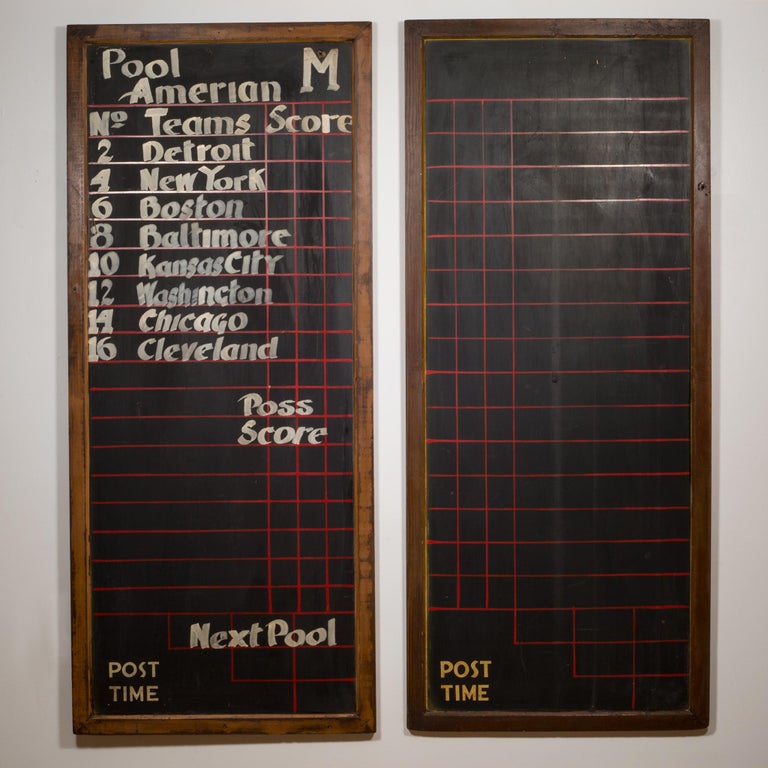 Pool
Amerian M
No Teams Score
2 Detroit
4 New York
6 Boston
8 Baltimore
10 Kansas City
12 Washington
14 Chicago
16 Cleveland
Poss
Score
Next Pool
POST
TIME
POST
TIME